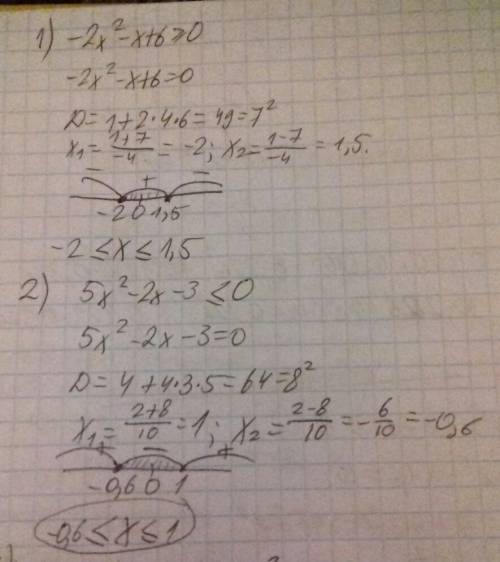 1) -2x²-x+6≥0
-2x²-x+6=0
D=1+2·4·6=49=7²
x₁=(1+7)/(-4)=-2; x₂=(1-7)/(-4)=1,5.
- + -
-2 0 1,5
-2≤x≤1,5
2) 5x²-2x-3≤0
5x²-2x-3=0
D=4+4·3·5=64=8²
x₁=(2+8)/10=1; x₂=(2-8)/10=-6/10=-0,6
+ - +
-0,6 0 1
-0,6≤x≤1